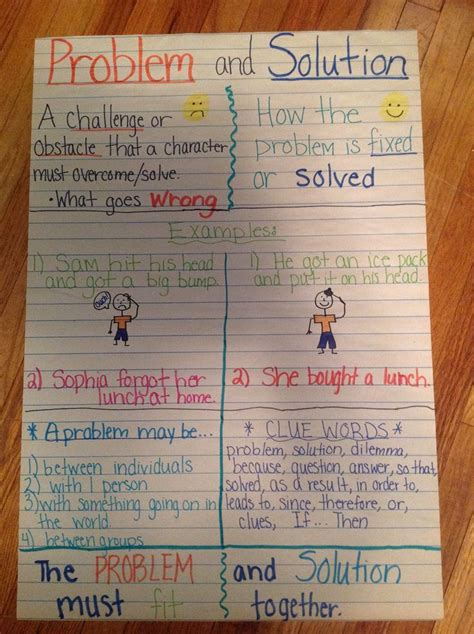 Problem and Solution
A challenge or
obstacle that a character
must overcome/solve.
• What goes Wrong
How the
problem is fixed
or solved
Examples:
1) Sam hit his head
and got a big bump.
Ouch
1) He got an ice pack
and put it on his head.
2) Sophia forgot her
lunch at home.
2) She bought a lunch.
* A problem may be...
1) between individuals
2) with 1 person
3) with something going on in
the world
4) between groups
* CLUE WORDS *
problem, solution, dilemma,
because, question, answer, so that,
solved, as a result, in order to,
leads to, since, therefore, or,
clues, If... Then
The PROBLEM and Solution
must fit together.